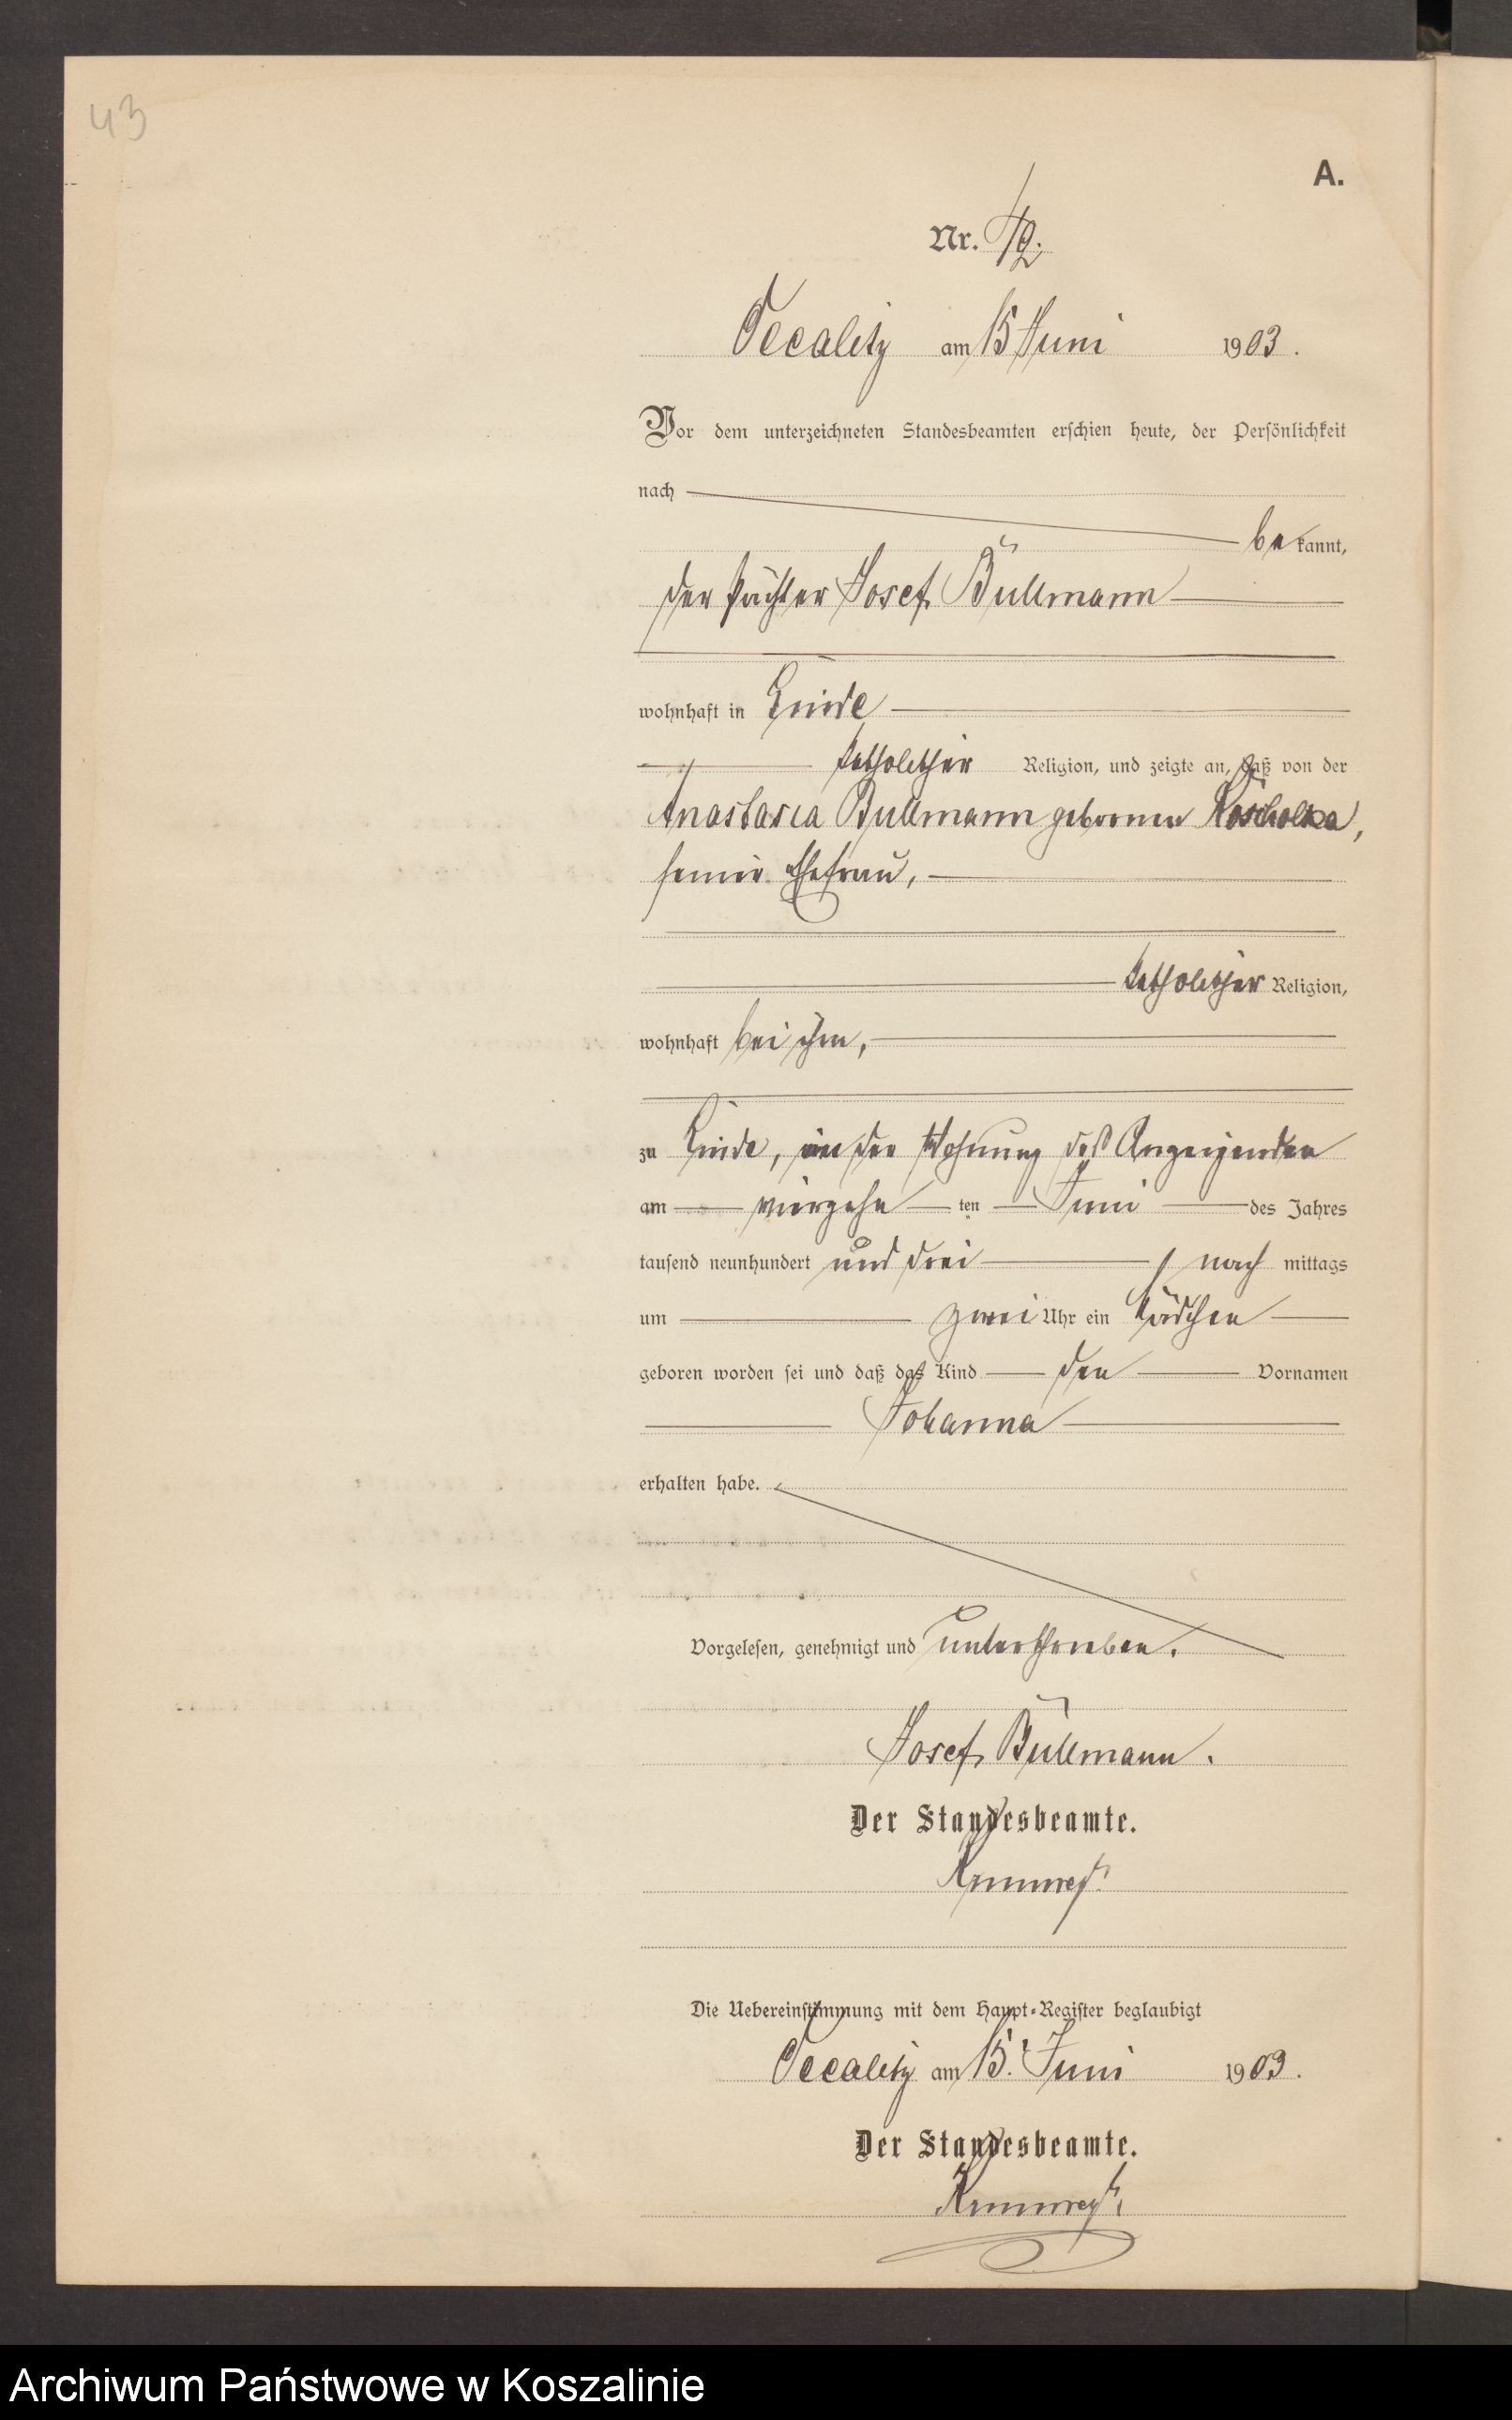 43
A.
Nr. 42.
Oecalitz am 15 Juni 1903.
Vor dem unterzeichneten Standesbeamten erschien heute, der Persönlichkeit
nach
be kannt,
der Pächter Josef Büllmann
wohnhaft in Linde
katholischer Religion, und zeigte an, daß von der
Anastasia Bullmann geborenen
seiner Ehefrau,
katholischer Religion,
wohnhaft bei ihm,
zu Linde, in der Wohnung des Anzeigenden
am vierzehn ten Juni des Jahres
tausend neunhundert und drei nach mittags
um zwei Uhr ein Mädchen
geboren worden sei und daß das Kind den Vornamen
Johanna
erhalten habe.
Vorgelesen, genehmigt und unterschrieben.
Josef Büllmann.
Der Standesbeamte.
Die Uebereinstimmung mit dem Haupt-Register beglaubigt
Oecalitz am 15. Juni 1903.
Der Standesbeamte.
Archiwum Państwowe w Koszalinie